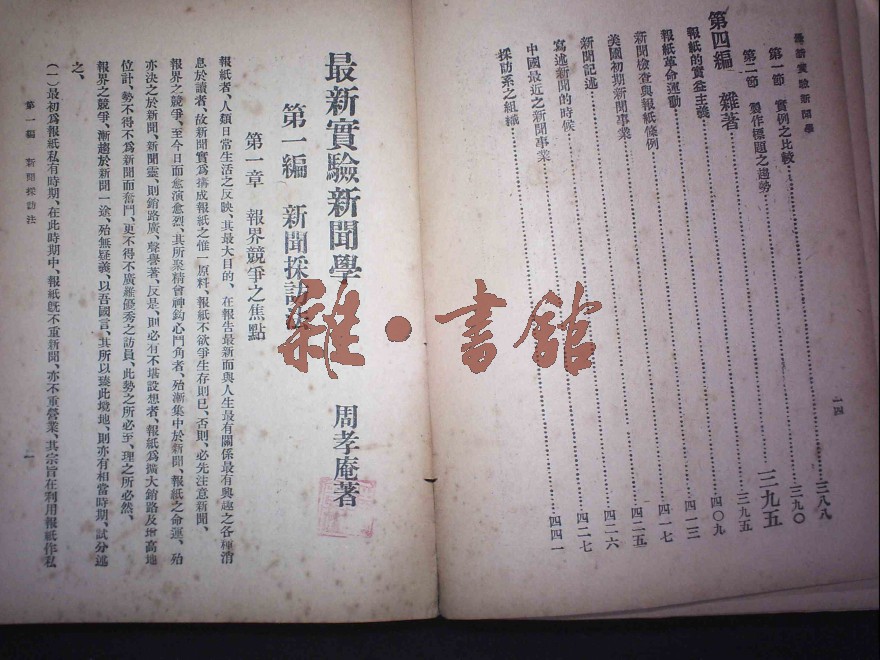 最新實驗新聞學
一四
第一節 實例之比較……三八八
第二節 製作標題之趨勢……三九〇
第四編 雜著……三九五
報紙的實益主義……三九五
報紙革命運動……四〇九
新聞檢查與報紙條例……四一三
美國初期新聞事業……四一七
新聞記述……四二五
寫述新聞的時候……四二六
中國最近之新聞事業……四二七
採訪系之組織……四四一
雜·書館
最新實驗新聞學 周孝庵著
第一編 新聞採訪法
第一章 報界競爭之焦點
報紙者、人類日常生活之反映、其最大目的、在報告最新而與人生最有關係最有興趣之各種消
息於讀者、故新聞實爲搆成報紙之惟一原料、報紙不欲爭生存則已、否則、必先注意新聞、
報界之競爭、至今日而愈演愈烈、其所聚精會神鈎心鬥角者、殆漸集中於新聞、報紙之命運、殆
亦決之於新聞、新聞靈、則銷路廣、聲譽著、反是、則必有不堪設想者、報紙爲擴大銷路及增高地
位計、勢不得不爲新聞而奮鬥、更不得不廣羅優秀之訪員、此勢之所必至、理之所必然、
報界之競爭、漸趨於新聞一途、殆無疑義、以吾國言、其所以臻此境地、則亦有相當時期、試分述
之、
(一)最初爲報紙私有時期、在此時期中、報紙旣不重新聞、亦不重營業、其宗旨在利用報紙作私
第一編 新聞採訪法
一